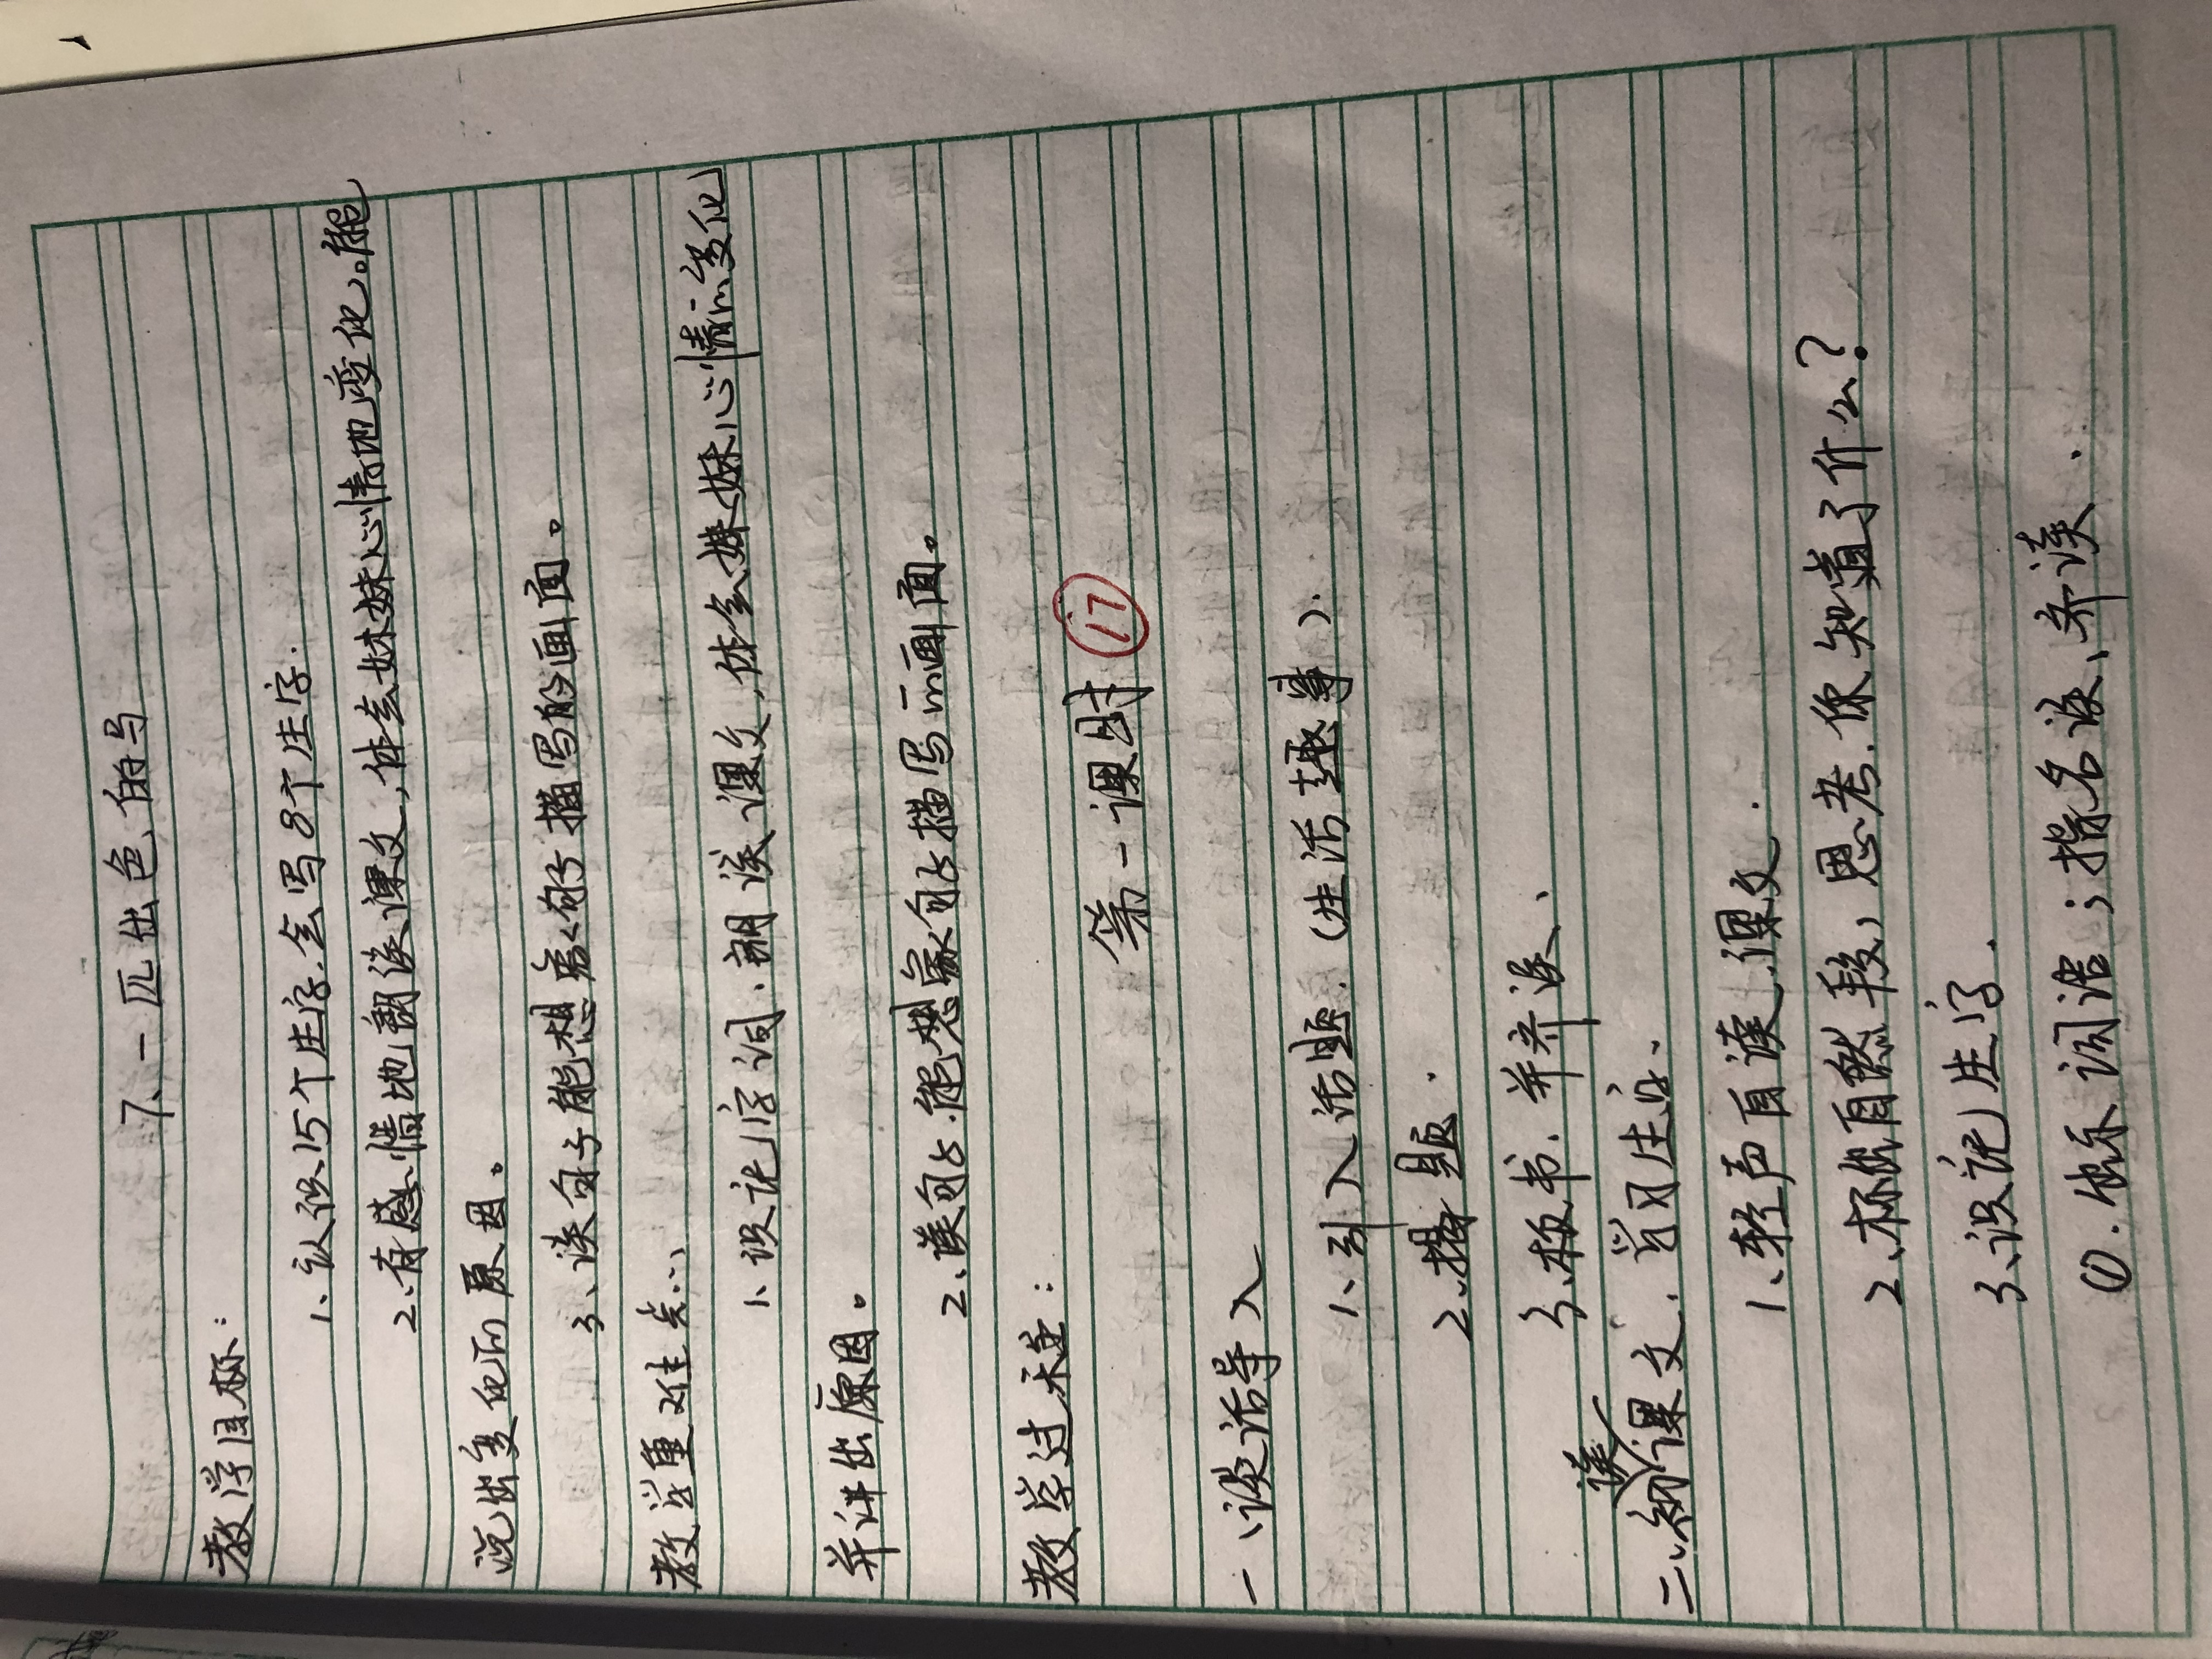 7、一匹出色的马
教学目标：
1、认识15个生字.会写8个生字.
2、有感情地朗读课文,体会妹妹心情地变化。能
说出变化的原因。
3、读句子能想象句子描写的画面。
教学重难点：
1、识记字词、朗读课文,体会妹妹心情的变化
并讲出原因。
2、读句子.能想象句子描写的画面。
教学过程：
第一课时 ⑰
一、谈话导入
1、引入话题.(生活趣事).
2、揭题.
3、板书.并齐读、
二、初读课文.学习生字.
1、轻声自读课文.
2、标出自然段，思考.你知道了什么？
3、识记生字.
①.出示词语；指名读、齐读、